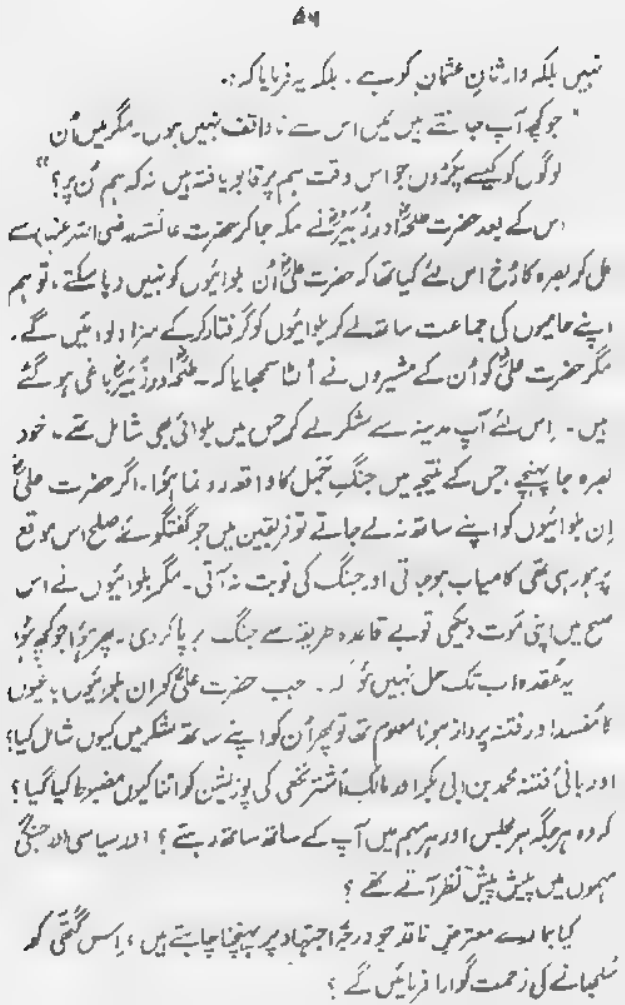 ۵۶
نہیں بلکہ وارثانِ عثمان کو ہے۔ بلکہ یہ فرمایا کہ:۔
"جو کچھ آپ جانتے ہیں میں اس سے ناواقف نہیں ہوں۔ مگر میں اُن
لوگوں کو کیسے پکڑوں جو اس وقت ہم پر قابو یافتہ ہیں نہ کہ ہم اُن پر؟"
اس کے بعد حضرت طلحہؓ اور زبیرؓ نے مکہ جا کر حضرت عائشہ رضی اللہ عنہا سے
مل کر بصرہ کا رُخ اس لئے کیا تھا کہ حضرت علیؓ اُن بلوائیوں کو نہیں دبا سکتے، تو ہم
اپنے حامیوں کی جماعت ساتھ لے کر بلوائیوں کو گرفتار کر کے سزا دلوائیں گے۔
مگر حضرت علیؓ کو اُن کے مشیروں نے اُلٹا سمجھایا کہ۔ طلحہؓ اور زُبیرؓ باغی ہو گئے
ہیں۔ اِس لئے آپ مدینہ سے لشکر لے کر جس میں بلوائی بھی شامل تھے۔ خود
بصرہ جا پہنچے۔ جس کے نتیجے میں جنگِ جَمل کا واقعہ رونما ہؤا۔ اگر حضرت علیؓ
اِن بلوائیوں کو اپنے ساتھ نہ لے جاتے تو فریقین میں جو گفتگوئے صلح اس موقع
پر ہو رہی تھی کامیاب ہو جاتی اور جنگ کی نوبت نہ آتی۔ مگر بلوائیوں نے اس
صلح میں اپنی مَوت دیکھی تو بے قاعدہ طریقہ سے جنگ برپا کر دی۔ پھر ہؤا جو کچھ ہؤا
یہ عُقدہ اب تک حل نہیں ہؤا کہ۔ جب حضرت علیؓ کو ان بلوائیوں باغیوں
کا مُفسد اور فتنہ پرداز ہونا معلوم تھا تو پھر اُن کو اپنے ساتھ لشکر میں کیوں شامل کیا؟
اور بانیٔ فتنہ محمد بن ابی بکر اور مالک اُشتر نخعی کی پوزیشن کو اتنا کیوں مضبوط کیا گیا؟
کہ وہ ہر جگہ ہر مجلس اور ہر مہم میں آپ کے ساتھ ساتھ رہتے؟ اور سیاسی اور جنگی
مہموں میں پیش پیش نظر آتے تھے؟
کیا ہمارے معترض ناقد جو درجۂ اجتہاد پر پہنچنا چاہتے ہیں، اِس گُتھی کو
سُلجھانے کی زحمت گوارا فرمائیں گے؟